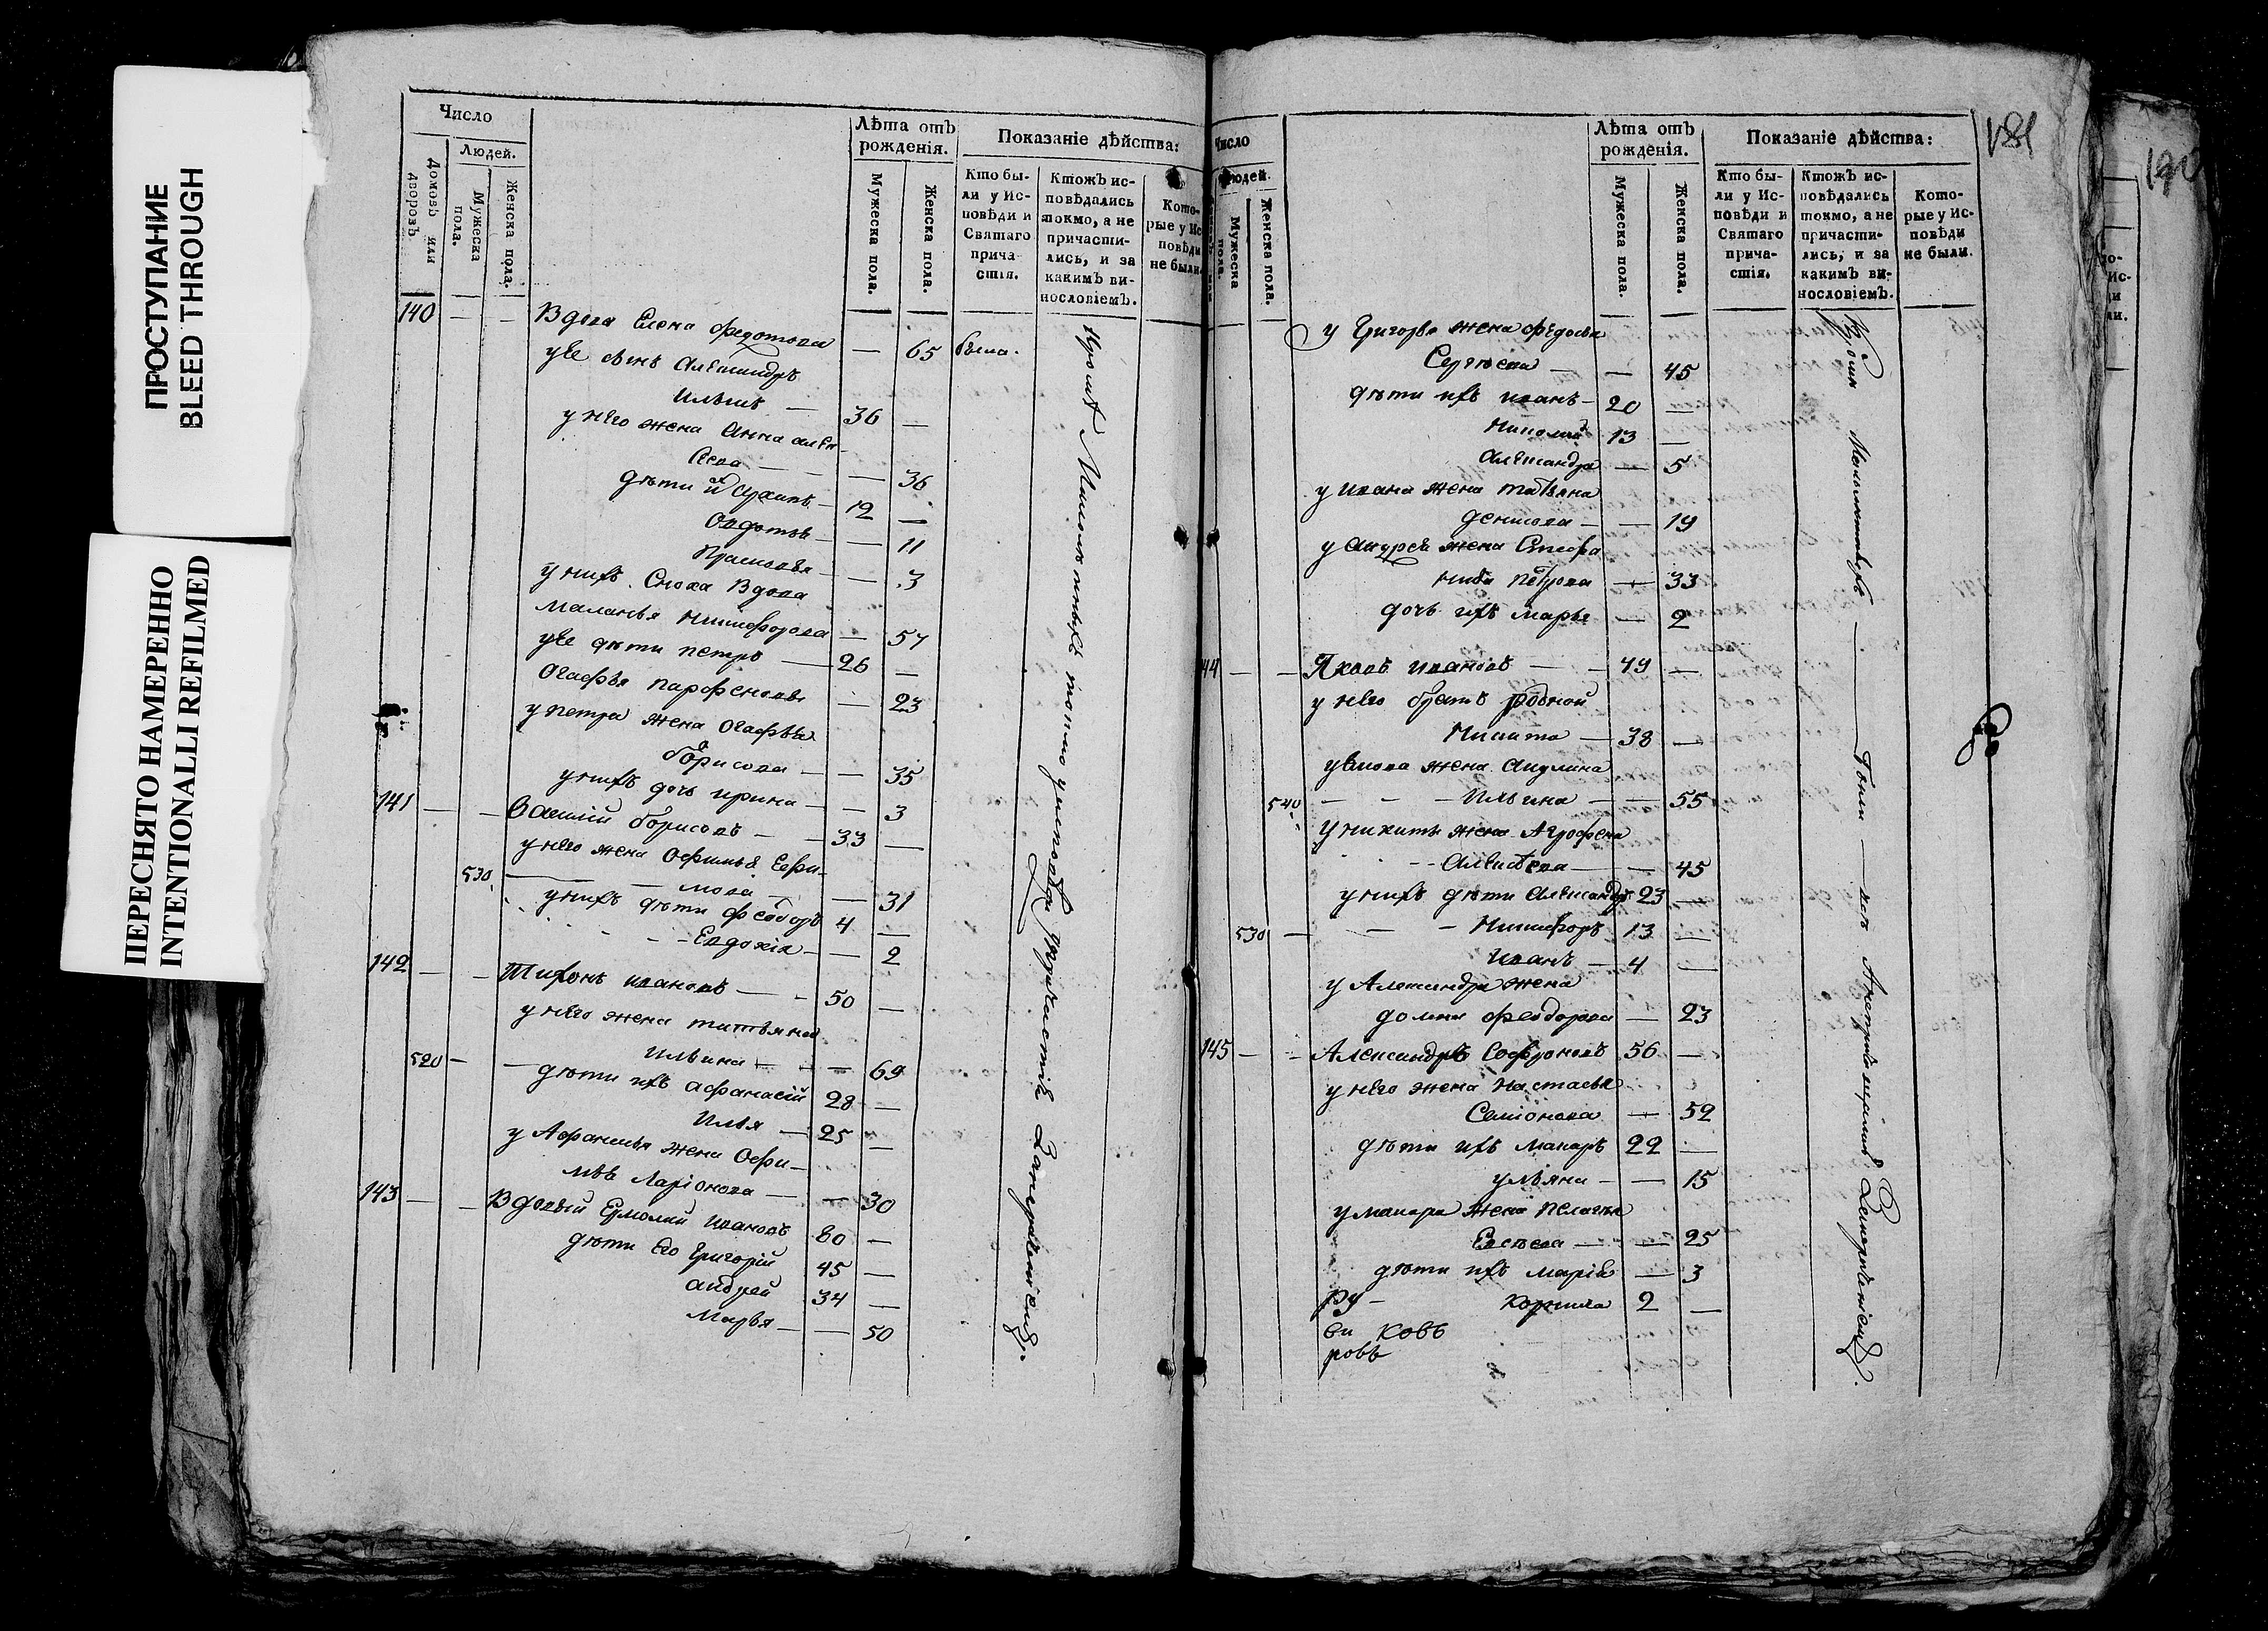 ПРОСТУПАНИЕ
BLEED THROUGH
ПЕРЕСНЯТО НАМЕРЕННО
INTENTIONALLI REFILMED
Число
Людей.
домовъ или дворовъ.
Мужеска пола.
Женска пола.
Лѣта отъ рожденія.
Мужеска пола.
Женска пола.
Показаніе дѣйства:
Кто бы-
ли у Ис-
повѣди и
Святаго
прича-
стія.
Ктожъ ис-
повѣдались
токмо, а не
причасти-
лись, и за
какимъ ви-
нословіемъ.
Кото-
рые у Ис
повѣди
не были
140 — — Вдова Елена Федотова — 65 была.
у ее сынъ Александръ
Ильинъ — 36 —
у него жена Анна Алек
сеева — — 36
дѣти их Архипъ — 12 —
Овдотья — — 11
Прасковья — — 3
у нихъ Сноха Вдова
Маланья Никифорова — 57
у ее дѣти Петръ — 26 —
Огафья Парфенова — 23
у Петра жена Огафья
Борисова — — 35
у нихъ дочь Ирина — — 3
141 — — Василій Борисовъ — 33 —
у него жена Офимья Ефи-
530 мова — — 31
у нихъ дѣти Феодоръ 4 —
Евдокія — — 2
142 — — Тихонъ Ивановъ — 50 —
у него жена Татьяна
520 — — Ильина — — 69
дѣти ихъ Афанасій 28 —
Илья — 25 —
у Афанасья жена Офи-
мья Ларіонова — — 30
143 — — Вдовый Ермолай Ивановъ 80 —
дѣти его Григорій 45 —
Андрей 34 —
Марья — — 50
Кромѣ Малолѣтныхъ токмо у исповѣди
Число
Людей.
Мужеска пола.
Женска пола.
Лѣта отъ
рожденія.
Мужеска пола.
Женска пола.
Показаніе дѣйства:
Кто бы-
ли у Ис-
повѣди и
Святаго
прича-
стія.
Ктожъ ис-
повѣдались
токмо, а не
причасти-
лись, и за
какимъ ви-
нословіемъ.
Кото-
рые у Ис-
повѣди
не были.
у Григорья жена Федосья
Сергѣева — — 45
дѣти ихъ Иванъ — 20 —
Николай 13 —
Александра — 5
у Ивана жена Татьяна
Денисова — — 19
у Андрея жена Степа
нида Петрова — 33
дочь ихъ Марья — 2
44 — — Яковъ Ивановъ — — 49 —
у него братъ родной
Никита — 38 —
у Якова жена Акулина
540 — — — Ильина — — 55
у Никиты жена Агрофена
— — Алексѣева — — 45
у нихъ дѣти Александръ 23 —
530 — — — Никифоръ 13 —
Иванъ — 4 —
у Александра жена
Домна Феодорова — 23
145 — — Александръ Софроновъ 56 —
у него жена Настасья
Семіонова — 52
дѣти ихъ Макаръ 22 —
Ульяна — — 15
у Макара жена Пелагея
Евсѣева — — 25
дѣти ихъ Марія — 3
Ру- Корнила 2 —
ковъ
ровъ